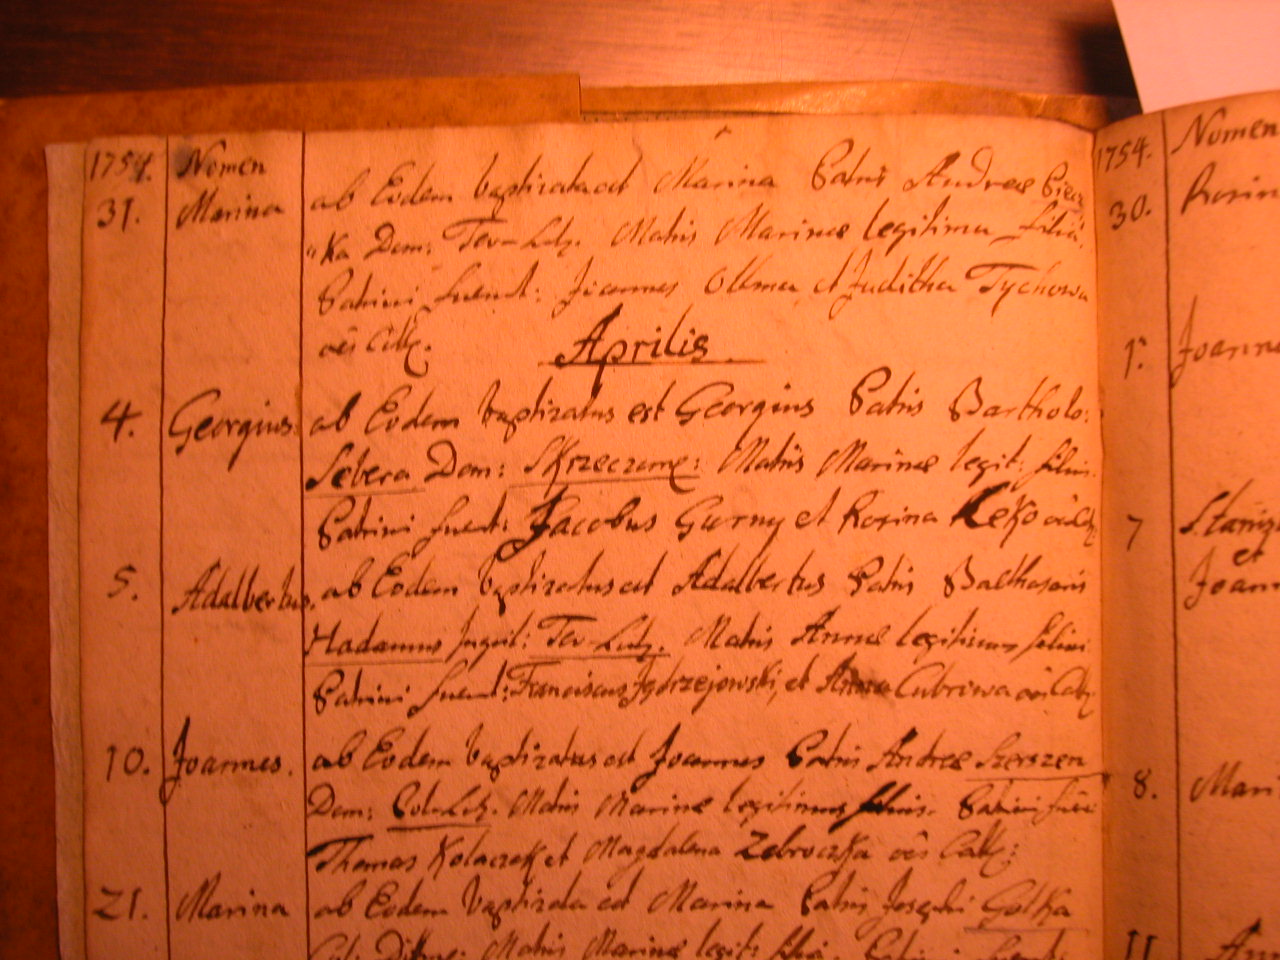 1754. Nomen
31. Marina ab Eodem baptizata est Marina Patris Andreae Piecz
"ka Dom: Ter-Lub. Matris Marinae legitima Filia.
Patrini fuerunt: Joannes Ollma et Juditha Tychowa
oes Cath.
Aprilis
4. Georgius ab Eodem baptizatus est Georgius Patris Bartholo:
Sebera Dom: Skrzeczme: Matris Marinae legit: filius.
Patrini fuerunt: Jacobus Gurny et Rosina Keko
5. Adalbertus. ab Eodem baptizatus est Adalbertus Patris Balthasaris
Hadamus Inquil: Ter-Lub. Matris Annae legitimus filius
Patrini fuerunt: Franciscus Jędrzejowski, et Anna Cubrowa
10. Joannes. ab Eodem baptizatus est Joannes Patris Andreae Szerszen
Dom: Matris Marinae legitimus filius. Patrini
Thomas Kolaczek et Magdalena Zebroczka oes Cath:
21. Marina ab Eodem baptizata est Marina Patris Josephi Golka
Matris Marinae legit: filia. Patrini
1754. Nomen
30. Rosin
1. Joanne
7 Stanis
et
Joann
8. Mari
11